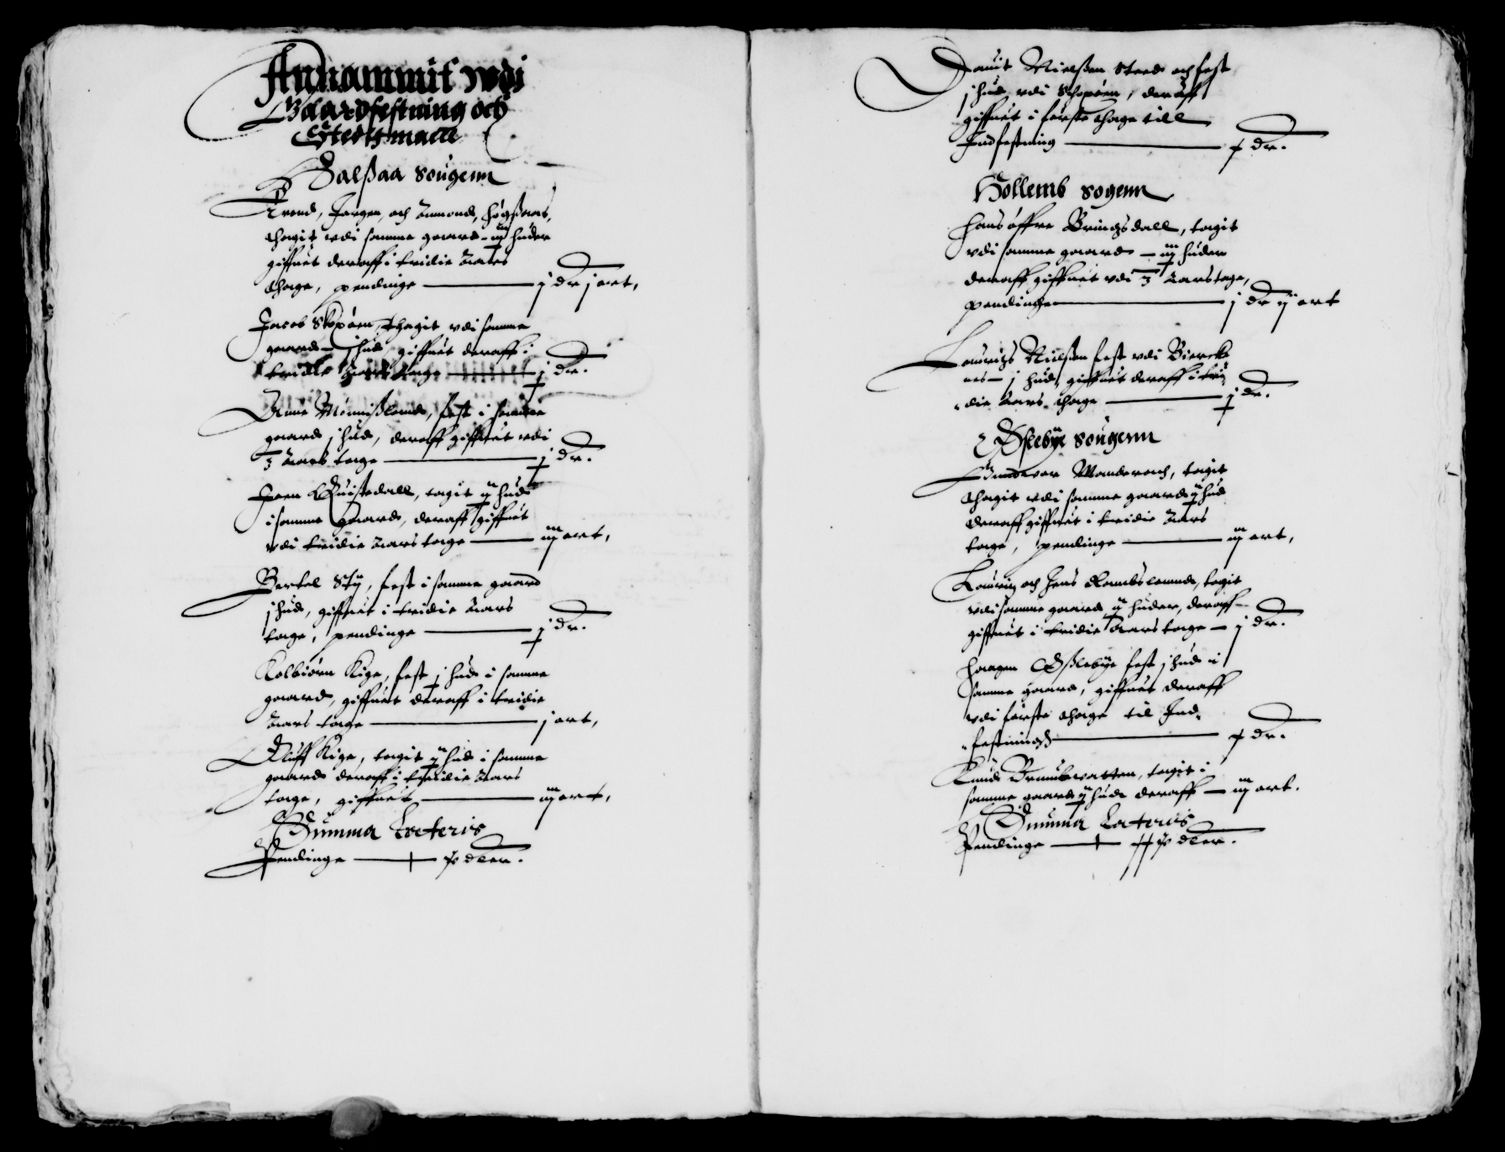 Annammit wdi
Gaardfestning och
Stedtzmaall
Halßaa Sougenn
Arend, Jørgen, och Aamond, Høgsaas,
thagit wdi samme gaard - iij huder
giffuet deraff i tridie Aars
thage, pendinge — j dr j ort,
Jacob Skopøen, thagit wdi samme
gaard - j hud, giffuet deraff i
tridie Aars thage — j dr.
Anne, fest i samme
gaard j hud, deraff giffuet wdi
3 Aars tage — j dr.
Joen Quistedall, tagit ij hud
i samme gaard, deraff giffuet
wdi tridie Aars tage — iij ort,
Bertel Sty, fest i samme gaard
j hud, giffuet i tridie Aars
tage, pendinge — j dr.
Kolbiørn Kige, fest j hud i samme
gaard, giffuet deraff i tridie
Aars tage — j ort,
Oluff Kige, tagit ij hud i samme
gaard deraff i tridie Aars
tage, giffuet — iij ort,
Summa Lateris
Pendinge — dler.
Dauit Nielsen Sted och fest
j hud, wdi Schopøen, deraff
giffuet i første thage till
Indfestning — dr.
Hollemb Sogenn
Hans Øffre Bringsdall, tagit
wdi samme gaard - iij huder
deraff giffuet wdi 3 Aars tage,
pendinge — j dr ij ort
Lauritz Nielsen fest wdi Bierck
nes - j hud, giffuet deraff i tri,
die Aars thage — j dr.
Øslebye Sougenn
tagit
thagit wdi samme gaard ij hud
deraff giffuet i tridie Aars
tage, pendinge — iij ort,
Lauritz och Jens, tagit
wdi samme gaard ij huder, deraff
giffuet i tridie Aars tage — j dr.
Haagen Øslebye fest j hud i
samme gaard, giffuet deraff
wdi første thage til Ind,
festningh — dr.
Knud, tagit i
samme gaard ij hud deraff — iij ort.
Summa Lateris
Pendinge — dler.